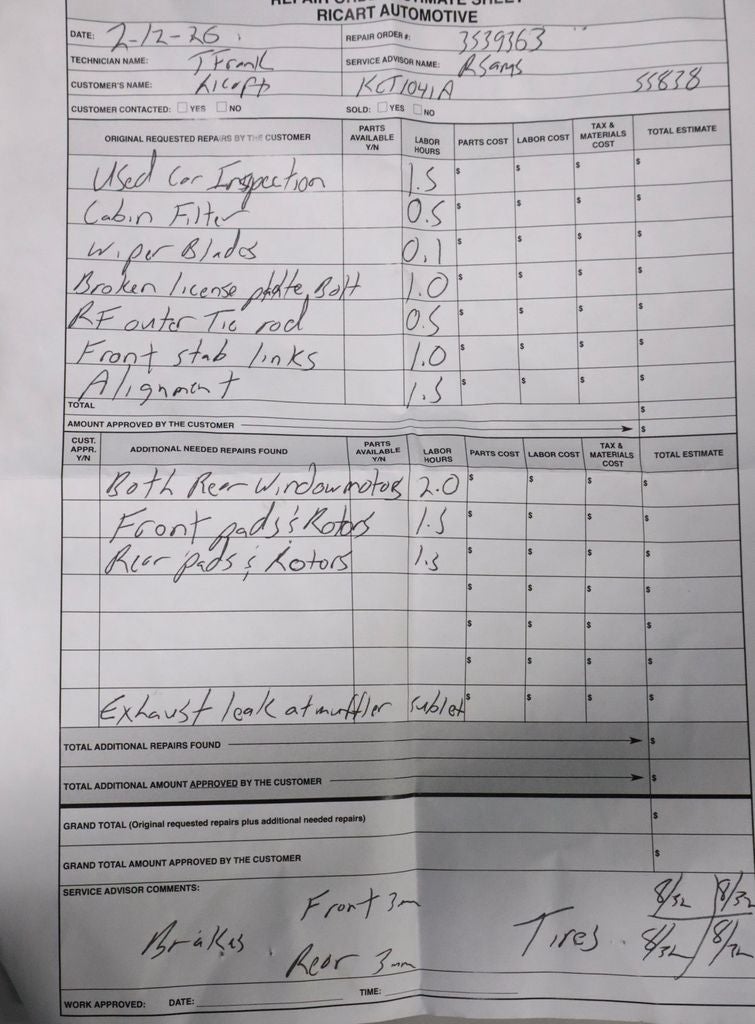 RICART AUTOMOTIVE
DATE: 2-12-26 REPAIR ORDER #: 3539363
TECHNICIAN NAME: T Frank SERVICE ADVISOR NAME: RSams
CUSTOMER'S NAME: Ricart KCT1041A 55838
CUSTOMER CONTACTED: YES NO SOLD: YES NO
ORIGINAL REQUESTED REPAIRS BY THE CUSTOMER PARTS AVAILABLE Y/N LABOR HOURS PARTS COST LABOR COST TAX & MATERIALS COST TOTAL ESTIMATE
Used Car Inspection 1.5 $ $ $ $
Cabin Filter 0.5 $ $ $ $
Wiper Blades 0.1 $ $ $ $
Broken license plate Bolt 1.0 $ $ $ $
RF outer Tie rod 0.5 $ $ $ $
Front stab links 1.0 $ $ $ $
Alignment 1.5 $ $ $ $
TOTAL $
AMOUNT APPROVED BY THE CUSTOMER $
CUST. APPR. Y/N ADDITIONAL NEEDED REPAIRS FOUND PARTS AVAILABLE Y/N LABOR HOURS PARTS COST LABOR COST TAX & MATERIALS COST TOTAL ESTIMATE
Both Rear Window motors 2.0 $ $ $ $
Front pads & Rotors 1.5 $ $ $ $
Rear pads & Rotors 1.5 $ $ $ $
$ $ $ $
$ $ $ $
$ $ $ $
Exhaust leak at muffler sublet $ $ $ $
TOTAL ADDITIONAL REPAIRS FOUND $
TOTAL ADDITIONAL AMOUNT APPROVED BY THE CUSTOMER $
GRAND TOTAL (Original requested repairs plus additional needed repairs) $
GRAND TOTAL AMOUNT APPROVED BY THE CUSTOMER $
SERVICE ADVISOR COMMENTS:
Front 3m 8/32 8/32
Brakes Tires 8/32 8/32
Rear 3mm
WORK APPROVED: DATE: TIME: